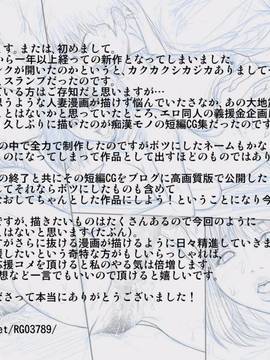 す。または、初めまして。
から一年以上経っての新作となってしまいました。
ンクが開いたのかというと、カクカクシカジカありまして
スランプだったのです。
ている方はご存知だと思いますが…
思うような人妻漫画が描けず悩んでいたさなか、あの大地
ことはないかと思っていたところ、エロ同人の義援金企画に
久しぶりに描いたのが痴漢モノの短編CG集だったのです
の中で全力で制作したのですがボツにしたネームもかな
このになってしまって作品として出すほどのものではあり
の終了と共にその短編CGをブログに高画質版で公開した
してそれならボツにしたものも含めて
おおしてちゃんとした作品にしよう!ということになり今
ですが、描きたいものはたくさんあるので今回のように
くはないと思います(たぶん)。
すがさらに抜ける漫画が描けるように日々精進していきま
しいという奇特な方がもしいらっしゃれば、
応援コメを頂けると私のやる気は倍増します。
想など一言でもいいので頂けると嬉しいです。
ださって本当にありがとうございました!
et/RG03789/